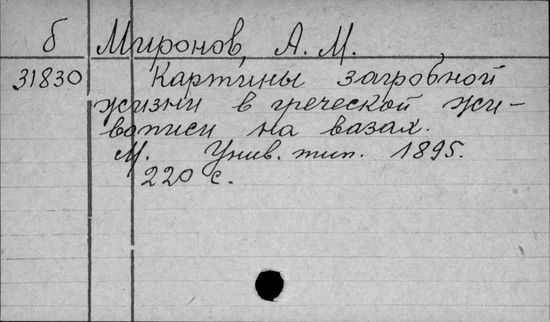 б Миронов, А. М.
31830 Картины загробной
жизни в греческой жи-
вописи на вазах.
М. Унив. тип. 1895.
220 с.